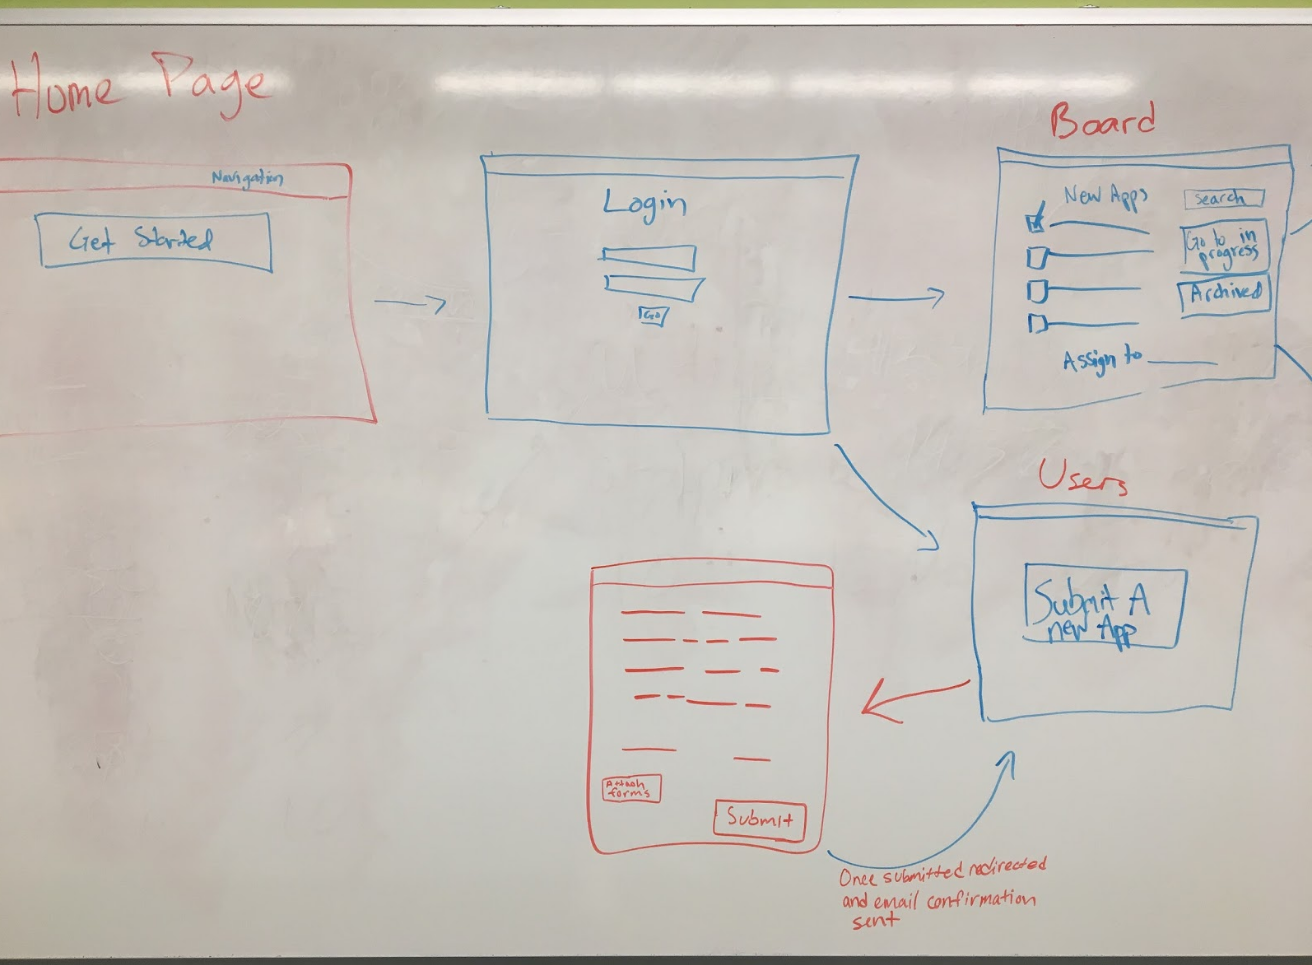 Home Page
Navigation
Get Started
Login
Go
Board
New Apps
search
Go to in
progress
Archived
Assign to
Users
Submit A
new App
Attach
forms
Submit
Once submitted redirected
and email confirmation
sent